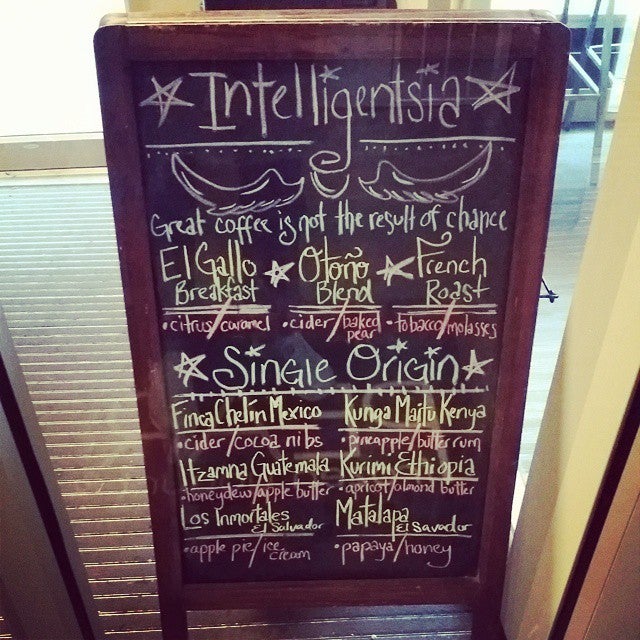 Intelligentsia
Great coffee is not the result of chance
El Gallo Otoño French
Breakfast Blend Roast
• citrus/caramel • cider/baked pear • tobacco/molasses
Single Origin
Finca Chelin Mexico Kunga Maitu Kenya
• cider/cocoa nibs • pineapple/butter rum
Itzamna Guatemala Kurimi Ethiopia
• honeydew/apple butter • apricot/almond butter
Los Inmortales El Salvador Matalapa El Savador
• apple pie/ice cream • papaya/honey